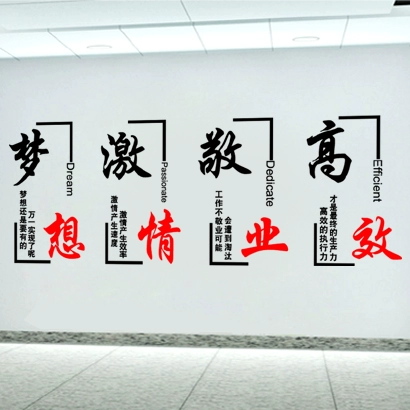 梦想
Dream
梦想还是要有的
万一实现了呢
激情
Passionate
激情产生速度
激情产生效率
敬业
Dedicate
工作不敬业可能
会遭到淘汰
高效
Efficient
高效的执行力
才是最终的生产力